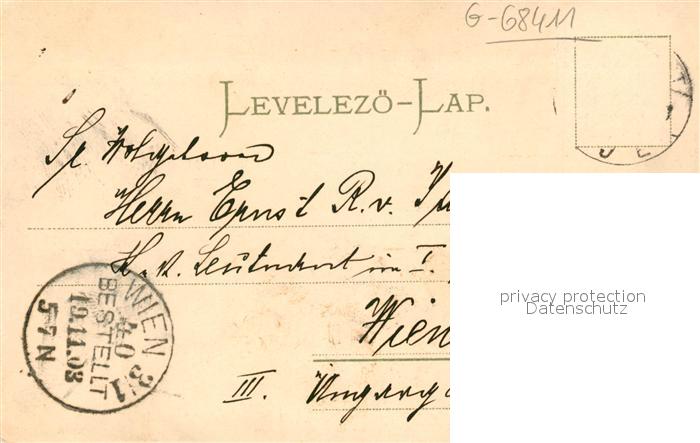 G-68411
LEVELEZŐ-LAP.
Herrn Ernst R. v.
K. u. K. Leutnant im I.
Wien
III. Ungarg
WIEN 3/1
40
BESTELLT
19.11.03
5-7 N
privacy protection
Datenschutz